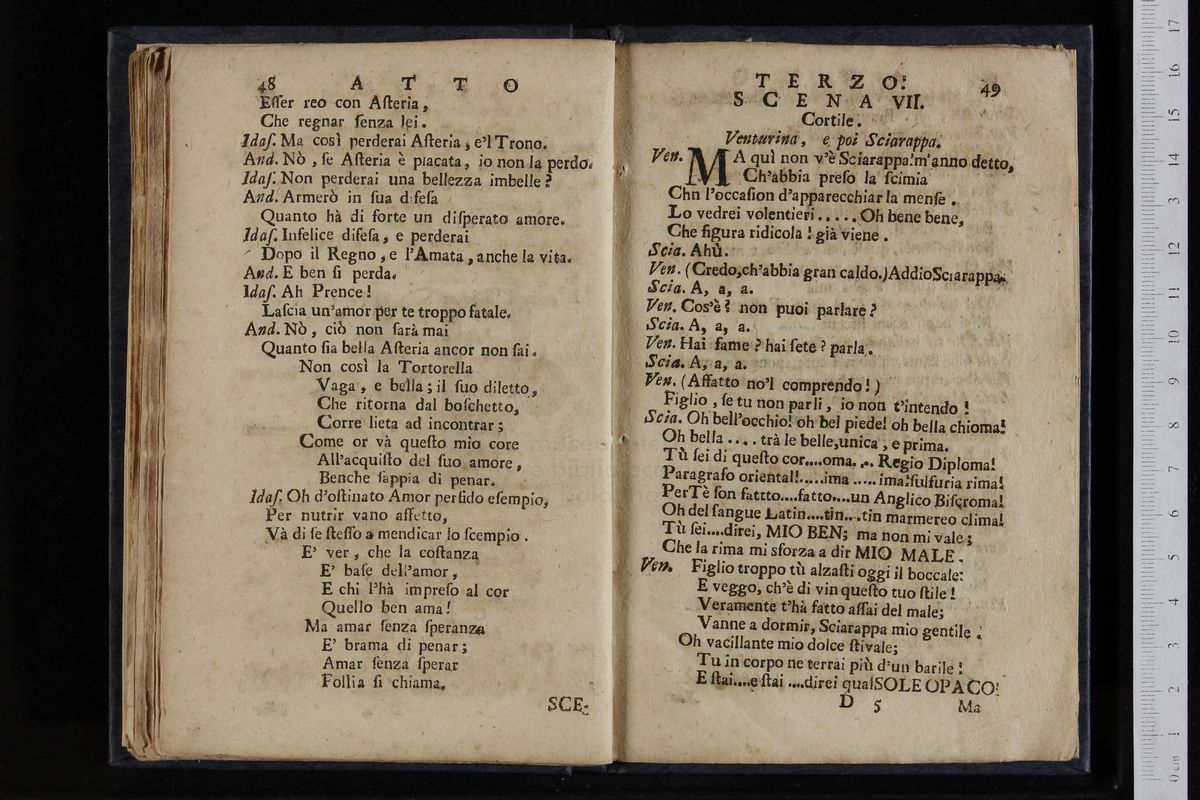 48 A T T O
Eſſer reo con Aſteria,
Che regnar ſenza lei.
Idaſ. Ma così perderai Aſteria, e'l Trono.
And. Nò, ſe Aſteria è piacata, io non la perdo.
Idaſ. Non perderai una bellezza imbelle?
And. Armerò in ſua difeſa
Quanto hà di forte un diſperato amore.
Idaſ. Infelice difeſa, e perderai
Dopo il Regno, e l'Amata, anche la vita.
And. E ben ſi perda.
Idaſ. Ah Prence!
Laſcia un'amor per te troppo fatale.
And. Nò, ciò non ſarà mai
Quanto ſia bella Aſteria ancor non ſai.
Non così la Tortorella
Vaga, e bella; il ſuo diletto,
Che ritorna dal boſchetto,
Corre lieta ad incontrar;
Come or và queſto mio core
All'acquiſto del ſuo amore,
Benche ſappia di penar.
Idaſ. Oh d'oſtinato Amor perfido eſempio,
Per nutrir vano affetto,
Và di ſe ſteſſo a mendicar lo ſcempio.
E' ver, che la coſtanza
E' baſe dell'amor,
E chi l'hà impreſo al cor
Quello ben ama!
Ma amar ſenza ſperanza
E' brama di penar;
Amar ſenza ſperar
Follia ſi chiama.
SCE-
T E R Z O. 49
S C E N A VII.
Cortile.
Venturina, e poi Sciarappa.
Ven. MA quì non v'è Sciarappa! m'anno detto,
Ch'abbia preſo la ſcimia
Chn l'occaſion d'apparecchiar la menſe.
Lo vedrei volentieri..... Oh bene bene,
Che figura ridicola! già viene.
Scia. Ahù.
Ven. (Credo,ch'abbia gran caldo.)AddioSciarappa.
Scia. A, a, a.
Ven. Cos'è? non puoi parlare?
Scia. A, a, a.
Ven. Hai fame? hai ſete? parla.
Scia. A, a, a.
Ven. (Affatto no'l comprendo!)
Figlio, ſe tu non parli, io non t'intendo!
Scia. Oh bell'occhio! oh bel piede! oh bella chioma!
Oh bella.... trà le belle,unica, e prima.
Tù ſei di queſto cor....oma... Regio Diploma!
Paragrafo oriental!.....ima.....ima!ſulfuria rima!
PerTè ſon fattto....fatto....un Anglico Biſcroma!
Oh del ſangue Latin....tin...tin marmereo clima!
Tù ſei....direi, MIO BEN; ma non mi vale;
Che la rima mi sforza a dir MIO MALE.
Ven. Figlio troppo tù alzaſti oggi il boccale:
E veggo, ch'è di vin queſto tuo ſtile!
Veramente t'hà fatto aſſai del male;
Vanne a dormir, Sciarappa mio gentile.
Oh vacillante mio dolce ſtivale;
Tu in corpo ne terrai più d'un barile!
E ſtai....e ſtai....direi qualSOLE OPACO!
D 5 Ma